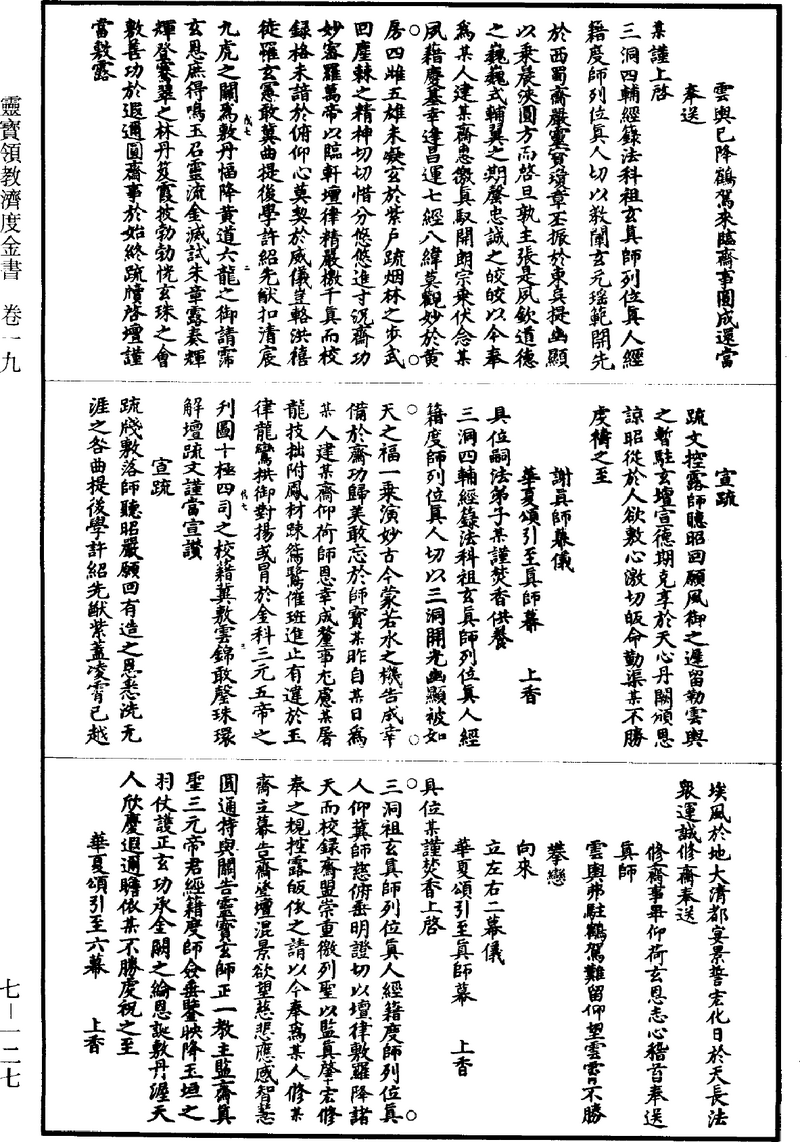 靈寶領教濟度金書 卷一九
七－一二七
雲輿已降鶴駕來臨齋事圓成還當
奉送
某謹上啓
三洞四輔經籙法科祖玄真師列位真人經
籍度師列位真人切以教闡玄元瑤範開先
於西蜀齋嚴靈寶瓊章丕振於東吳提幽顯
以乘晨浹圓方而啓旦孰主張是夙欽道德
之巍巍式輔翼之期罄忠誠之皎皎以今奉
為某人建某齋恵徼真馭開朗宗乘伏念某
夙藉慶基幸逢昌運七經八緯莫觀妙於黄
房四雌五雄未凝玄於紫戶疏烟林之步武
回塵棘之精神切切惜分悠悠進寸況齋功
妙密羅萬帝以臨軒壇律精嚴檄千真而校
録格未諳於俯仰心莫契於威儀豈輅洪禧
徒罹玄憲敢冀曲提後學許紹先猷扣清宸
九虎之關為敷丹悃降黄道六龍之御請霈
玄恩庶得鳴玉召靈流金滅試朱章露奏輝
輝登騫翠之林丹笈霞披勃勃恍玄珠之會
敷善功於遐邇圓齋事於始終疏牘啓壇謹
當敷露
宣疏
疏文控露師聽昭回願風御之遲留勒雲輿
之暫駐玄壇宣德期克享於天心丹闕頒恩
諒昭從於人欲敷心激切皈命勤渠某不勝
虔禱之至
謝真師幕儀
華夏頌引至真師幕 上香
具位嗣法弟子某謹焚香供養
三洞四輔經籙法科祖玄真師列位真人經
籍度師列位真人切以三洞開光幽顯被如
天之福一乘演妙古今蒙若水之機告咸幸
備於齋功歸美敢忘於師寶某昨自某日為
某人建某齋仰荷師恩幸成釐事尢慮某屠
龍技拙附鳳材踈鵷鷺催班進止有違於玉
律龍鸞拱御對揚或冒於金科三元五帝之
刋圖十極四司之校籍冀敷雲錦敢罄珠環
解壇疏文謹當宣讚
宣疏
疏牋敷落師聽昭嚴願回有造之恩悉洗无
涯之咎曲提後學許紹先猷紫蓋凌霄已越
埃風於地大清都宴景誓宏化日於天長法
衆運誠修齋奉送
修齋事畢仰荷玄恩志心稽首奉送
真師
雲輿弗駐鶴駕難留仰望雲霄不勝
攀戀
向來
立左右二幕儀
華夏頌引至真師幕 上香
具位某謹焚香上啓
三洞祖玄真師列位真人經籍度師列位真
人仰冀師慈俯垂明證切以壇律敷羅降諸
天而校録齋盟崇重徼列聖以監真肇宏修
奉之規控露皈依之請以今奉為某人修某
齋立幕告齋登壇混景欲望慈悲應感智慧
圓通特與關告靈寶玄師正一教主監齋真
聖三元帝君經籍度師僉垂鑒映降玉垣之
羽仗護正玄功承金闕之綸恩誕敷丹渥天
人欣慶遐邇瞻依某不勝虔祝之至
華夏頌引至六幕 上香